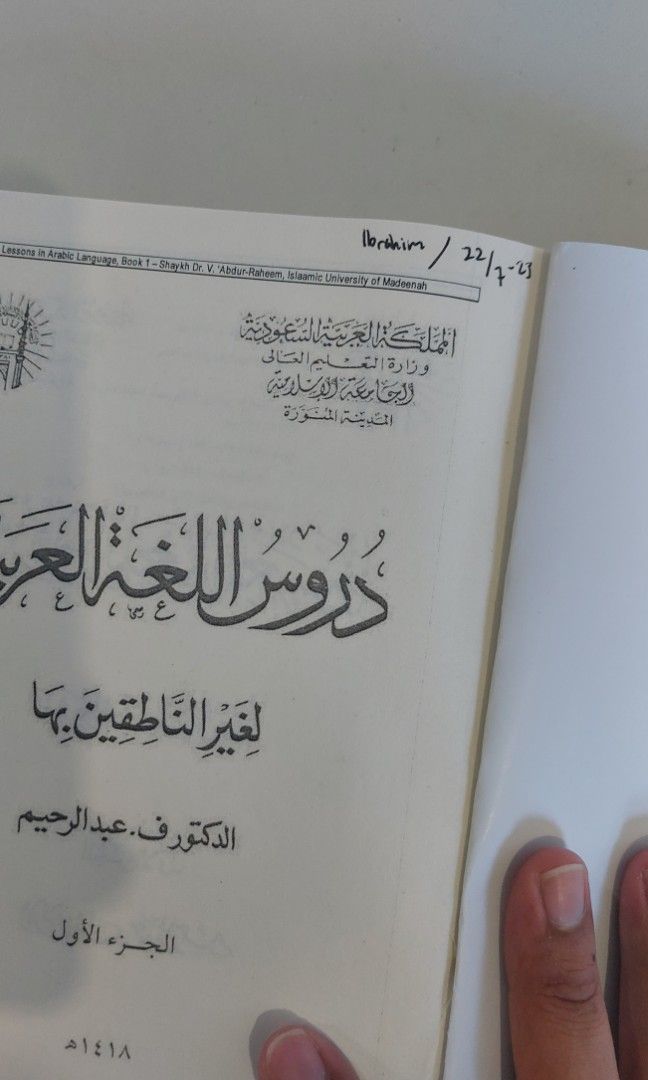 Ibrahim / 22/7-23
Lessons in Arabic Language, Book 1 – Shaykh Dr. V. 'Abdur-Raheem, Islaamic University of Madeenah
المملكة العربية السعودية
وزارة التعليم العالى
الجامعة الإسلامية
المدينة المنورة
دُرُوسُ اللغة العربي
لِغَيْرِ النَّاطِقِينَ بِهَا
الدكتور ف. عبد الرحيم
الجزء الأول
١٤١٨هـ